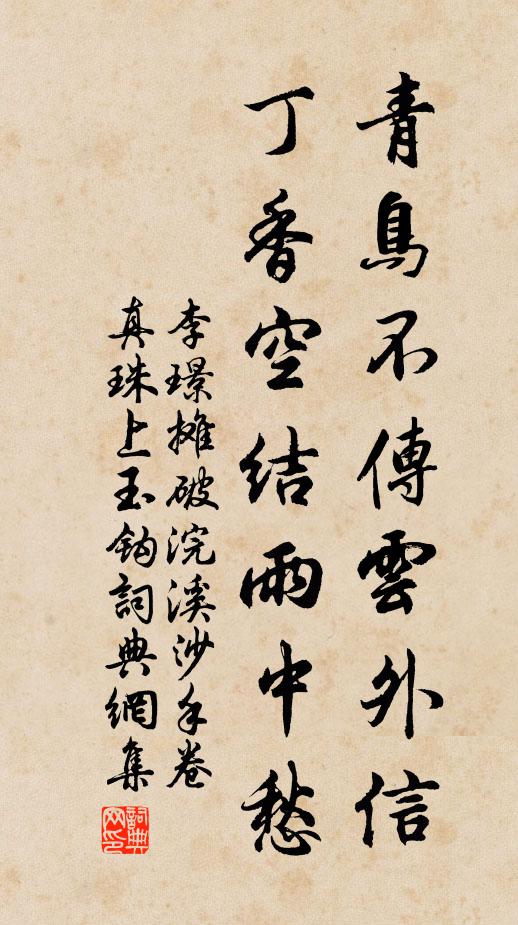 青鳥不傳雲外信
丁香空結雨中愁
李璟攤破浣溪沙手卷
真珠上玉鈎詞典網集
詞典网印